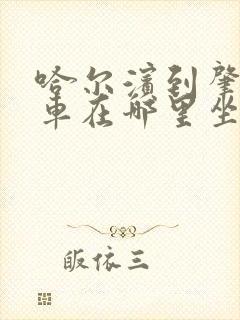 哈尔滨到肇
车在哪里坐
皈依三